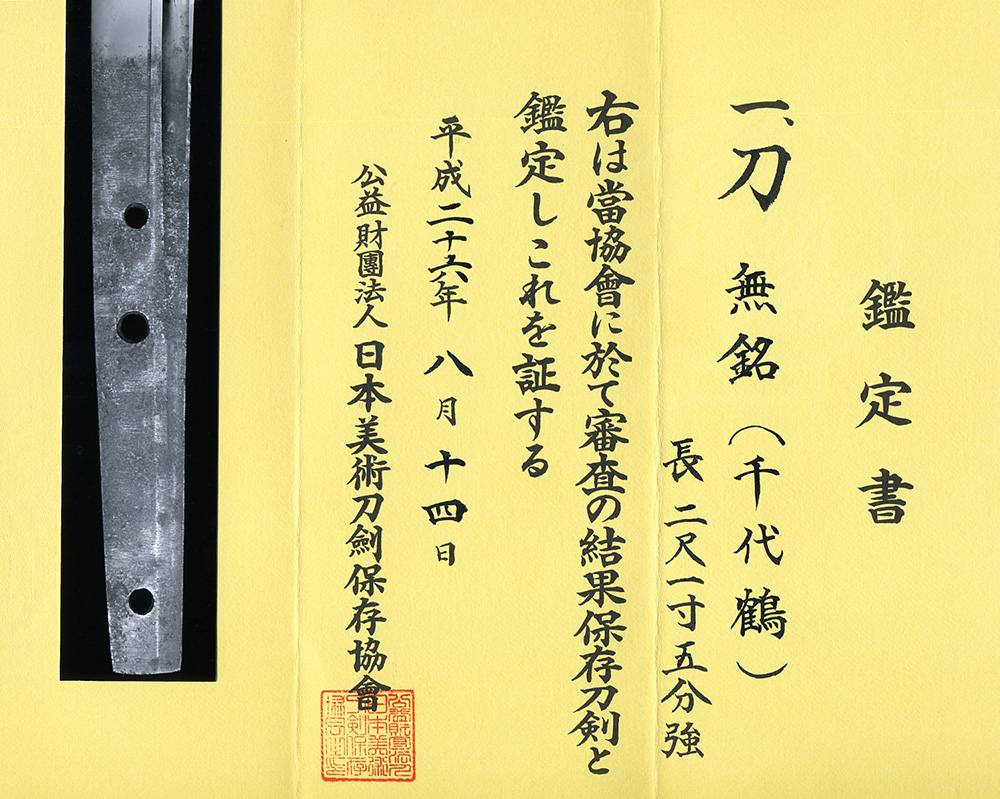 鑑定書
一、刀 無銘（千代鶴）
長 二尺一寸五分強
右は當協會に於て審査の結果保存刀剣と
鑑定しこれを証する
平成二十六年 八月 十四日
公益財團法人 日本美術刀劍保存協會